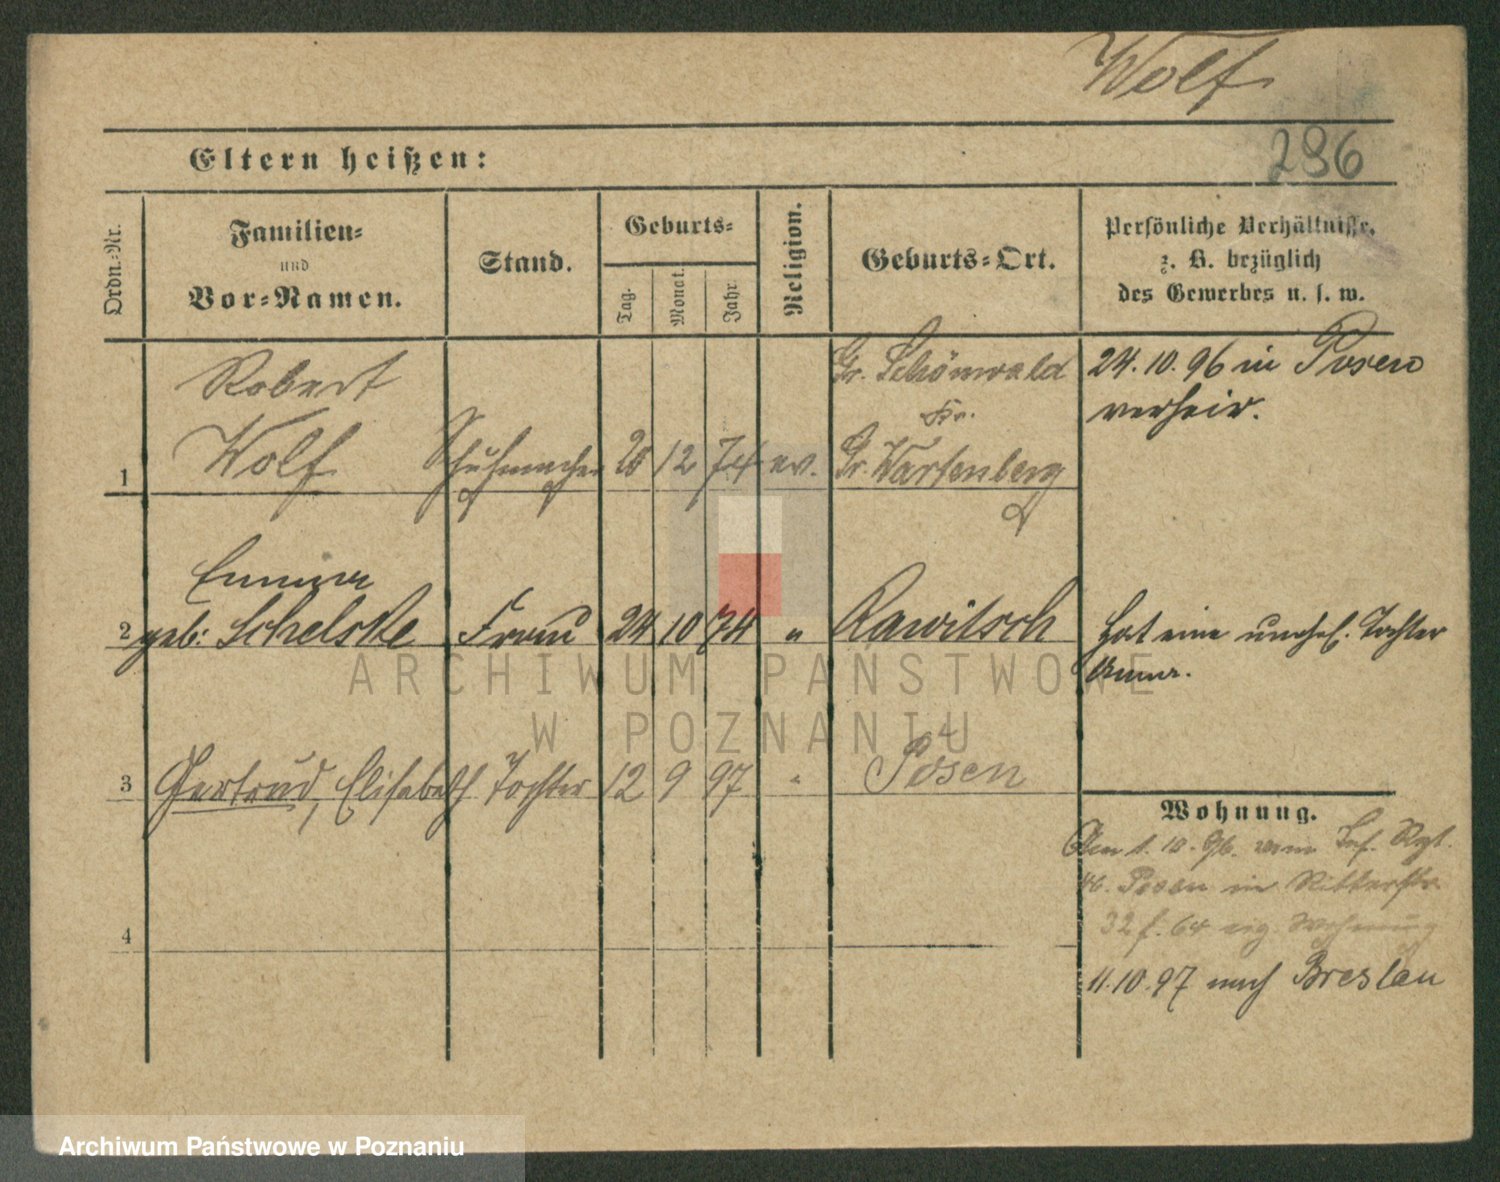 Wolf
286
Eltern heißen:
Ordn.-Nr.
Familien-
und
Vor-Namen.
Stand.
Geburts-
Tag.
Monat.
Jahr
Religion.
Geburts-Ort.
Persönliche Verhältnisse,
z. B. bezüglich
des Gewerbes u. s. w.
Robert
Gr. Schönwald
24. 10. 96 in Posen
Kr.
verheir.
1 Wolf Schuhmacher 12 74 ev. Gr. Wartenberg
Emma
2 geb: Schelske Frau 24 10 74 " Rawitsch
Hat eine unehel. Tochter
Anna.
3 Gertrud, Elisabeth Tochter 12 9 97 " Posen
Wohnung.
Am 1. 10. 96. vom Inf. Rgt.
46. Posen in Ritterstr.
32 f. 64 eig. Wohnung
4
11.10.97 nach Breslau
ARCHIWUM PAŃSTWOWE
W POZNANIU
Archiwum Państwowe w Poznaniu